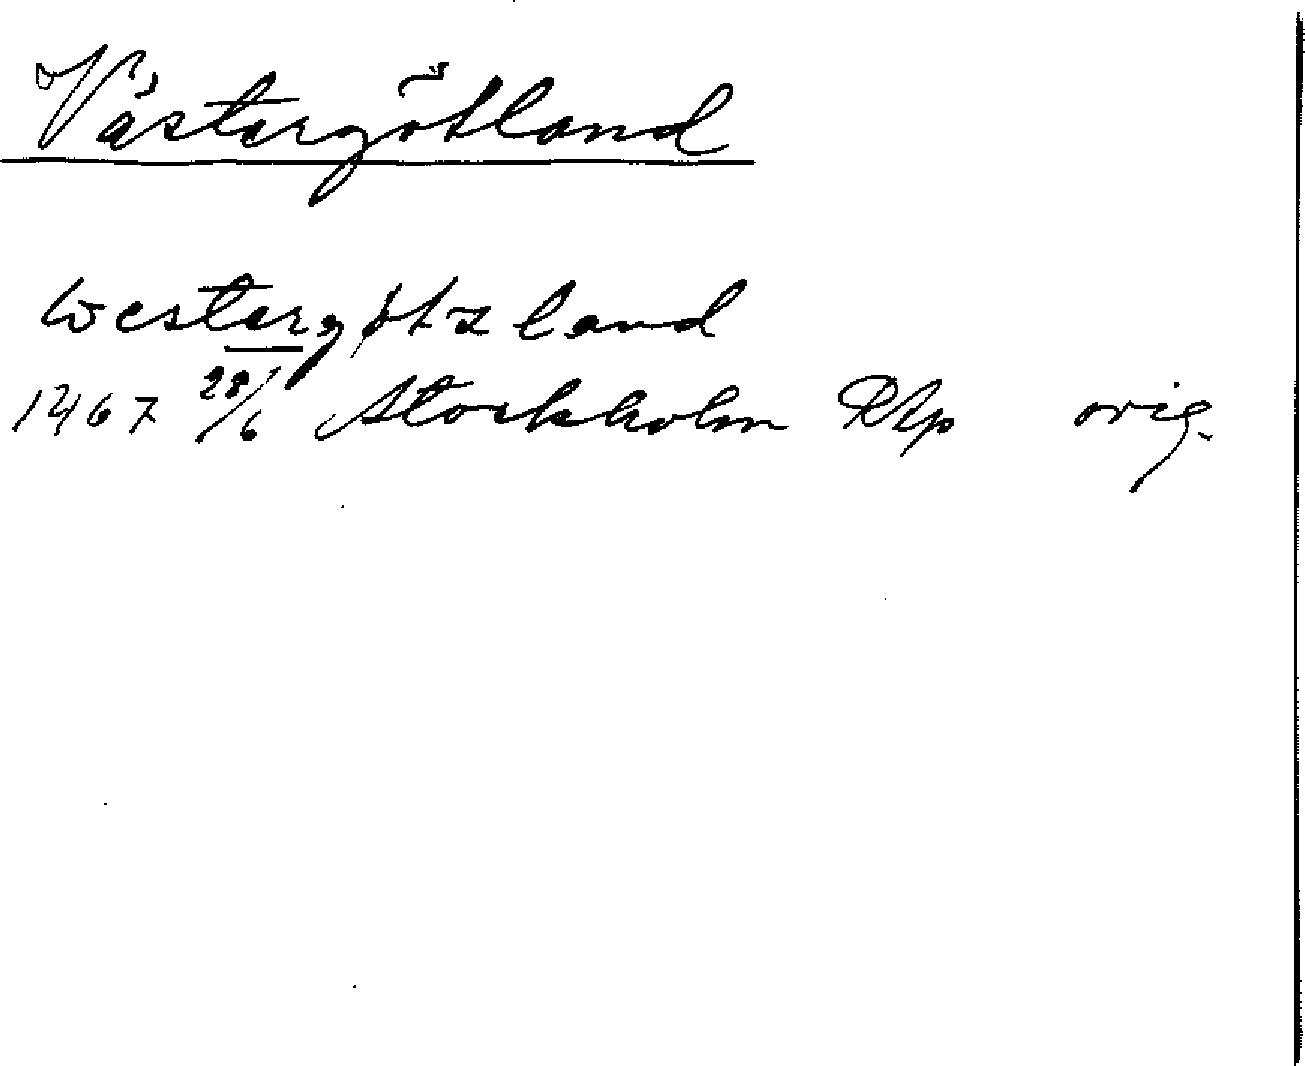 Västergötland
westergøtzland
1467 28/6 Stockholm RAp orig.